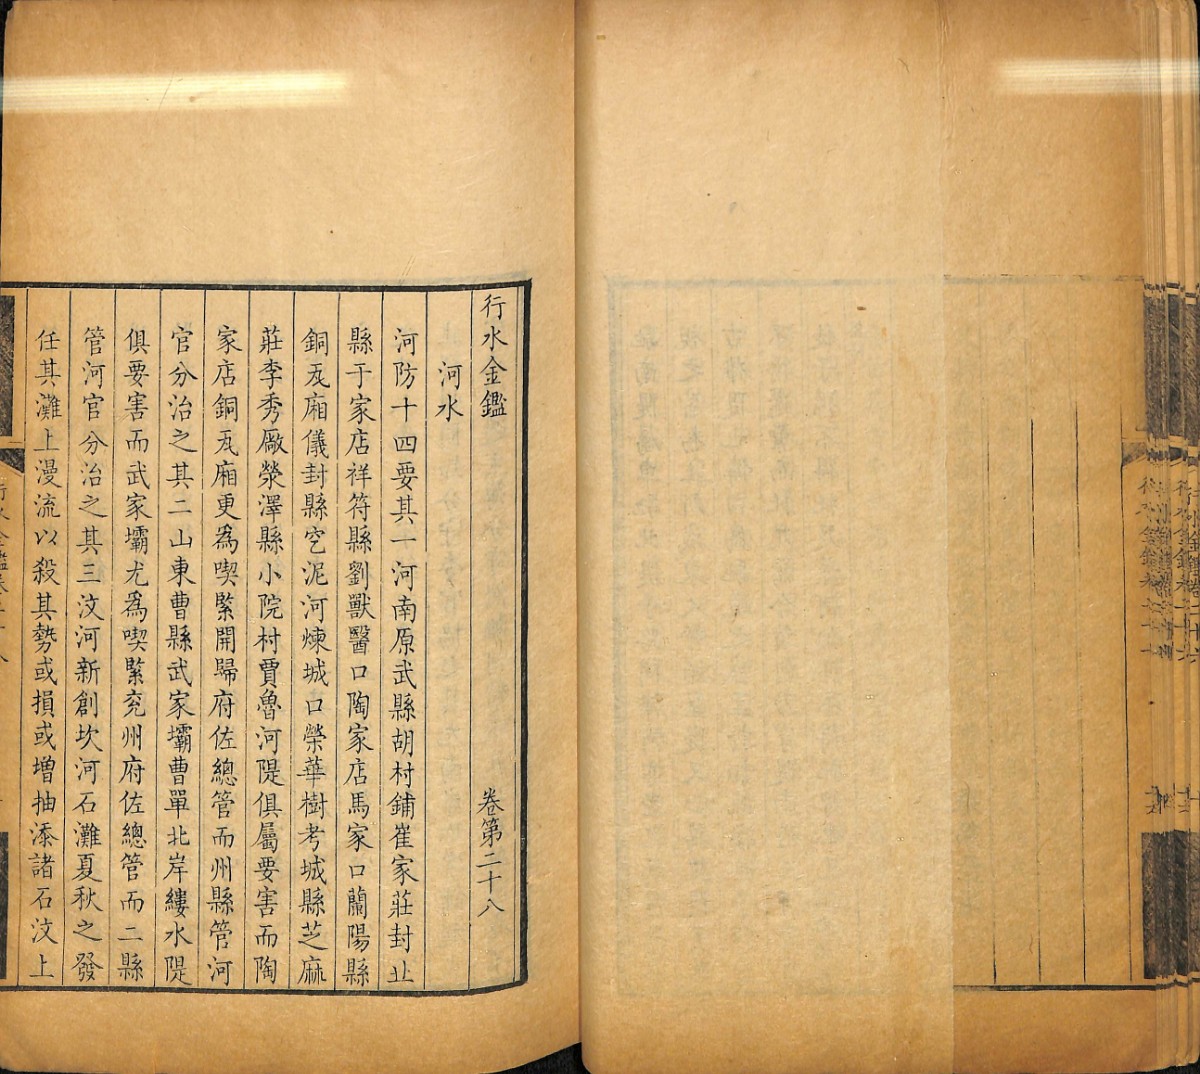 行水金鑑 卷第二十八
河水
河防十四要其一河南原武縣胡村鋪崔家莊封丠
縣于家店祥符縣劉獸醫口陶家店馬家口蘭陽縣
銅瓦廂儀封縣窄泥河煉城口榮華樹考城縣芝麻
莊李秀廠滎澤縣小院村賈魯河隄俱屬要害而陶
家店銅瓦廂更為喫緊開歸府佐總管而州縣管河
官分治之其二山東曹縣武家壩曹單北岸縷水隄
俱要害而武家壩尤為喫緊兖州府佐總管而二縣
管河官分治之其三汶河新創坎河石灘夏秋之發
任其灘上漫流以殺其勢或損或增抽添諸石汶上
行水金鑑卷二十八